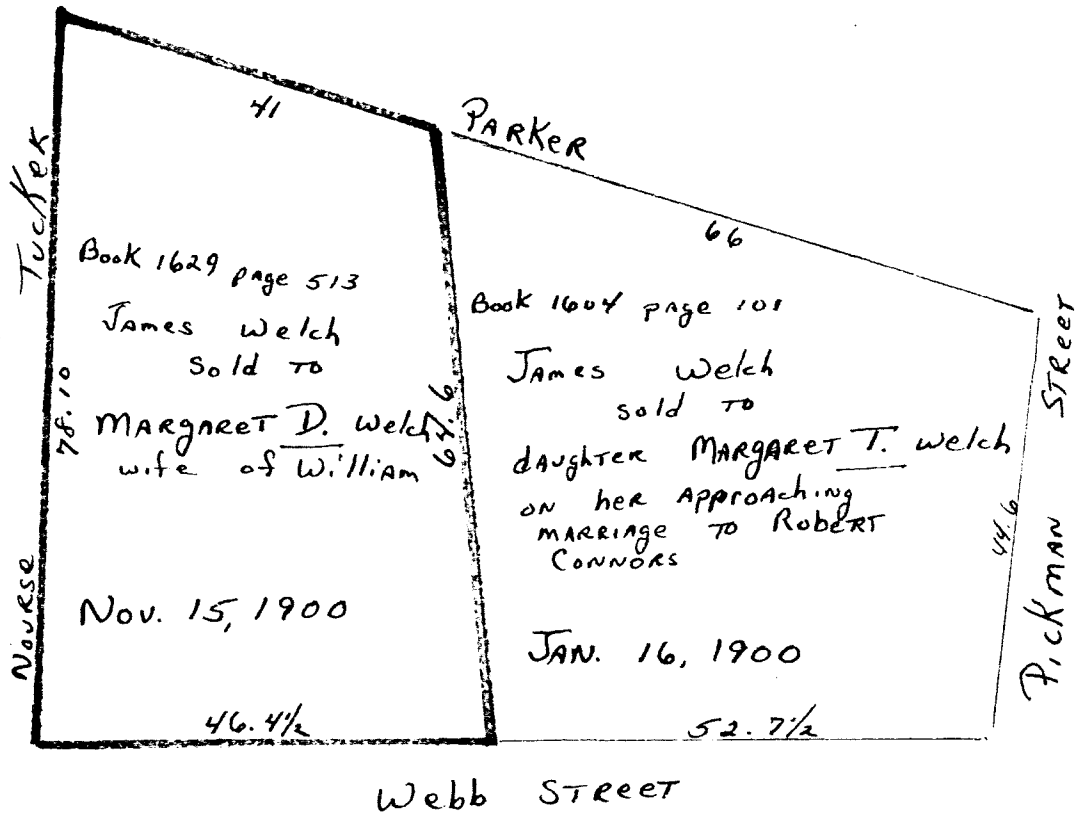 41
PARKER
66
TUCKER
Book 1629 page 513
James Welch
sold to
MARGARET D. Welch
wife of William
78.10
NOURSE
Nov. 15, 1900
46.4½
64.6
Book 1604 page 101
James Welch
sold to
daughter MARGARET T. Welch
on her approaching
marriage to Robert
Connors
Jan. 16, 1900
52.7½
44.6
PICKMAN STREET
Webb STREET